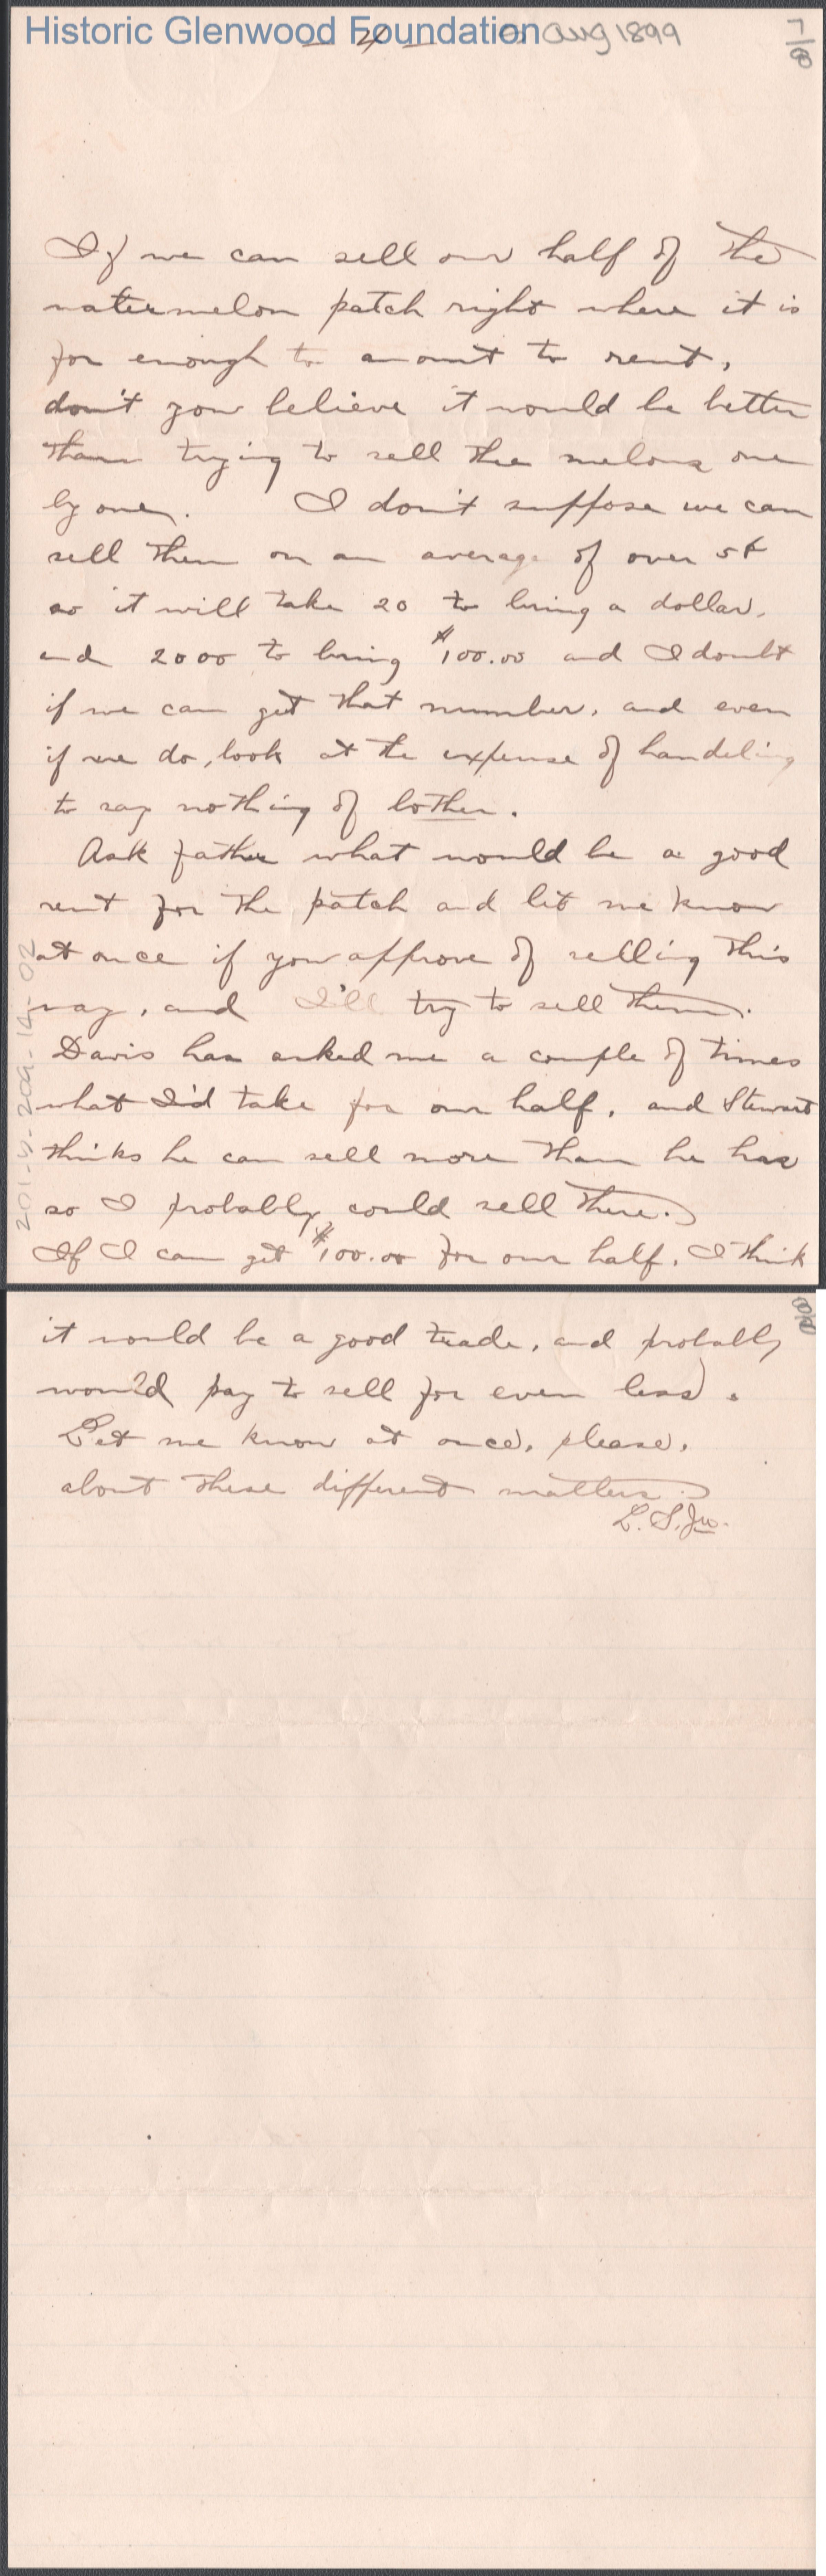 Historic Glenwood Foundation
- 4 -
Aug 1899
7/8
If we can sell our half of the
watermelon patch right where it is
for enough to amount to rent,
don't you believe it would be better
than trying to sell the melons one
by one. I don't suppose we can
sell them on an average of over 5¢
so it will take 20 to bring a dollar,
and 2000 to bring $100.00 and I doubt
if we can get that number, and even
if we do, look at the expense of handeling
to say nothing of bother.
Ask father what would be a good
rent for the patch and let me know
at once if you approve of selling this
way, and I'll try to sell them.
Davis has asked me a couple of times
what I'd take for our half, and Stewart
thinks he can sell more than he has
so I probably could sell there.
If I can get $100.00 for our half, I think
it would be a good trade, and probably
would pay to sell for even less.
Let me know at once, please,
about these different matters.
L. S. Jr.